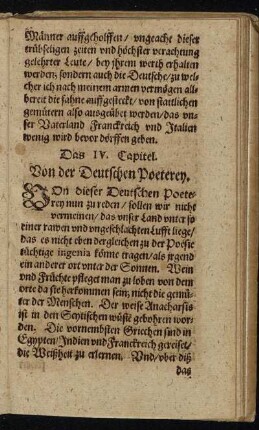 Männer auffgeholffen / vngeacht dieser
trübseligen zeiten vnd höchster verachtung
gelehrter Leute / bey jhrem werth erhalten
werden; sondern auch die Deutsche / zu wel-
cher ich nach meinem armen vermögen all-
bereit die fahne auffgesteckt / von stattlichen
gemütern also außgeübet werden / das vn-
ser Vaterland Franckreich vnd Italien
wenig wird bevor dörffen geben.
Das IV. Capitel.
Von der Deutschen Poeterey.
VOn dieser Deutschen Poete-
rey nun zu reden / sollen wir nicht
vermeinen / das vnser Land vnter so
einer rawen vnd vngeschlachten Lufft liege /
das es nicht eben dergleichen zu der Poesie
tüchtige ingenia könne tragen / als jrgend
ein anderer ort vnter der Sonnen. Wein
vnd Früchte pfleget man zu loben von dem
orte da sie herkommen sein; nicht die gemü-
ter der Menschen. Der weise Anacharsis
ist in den Scytischen wüste gebohren wor-
den. Die vornembsten Griechen sind in
Egypten / Indien vnd Franckreich gereiset /
die Weißheit zu erlernen. Vnd / vber diß
das